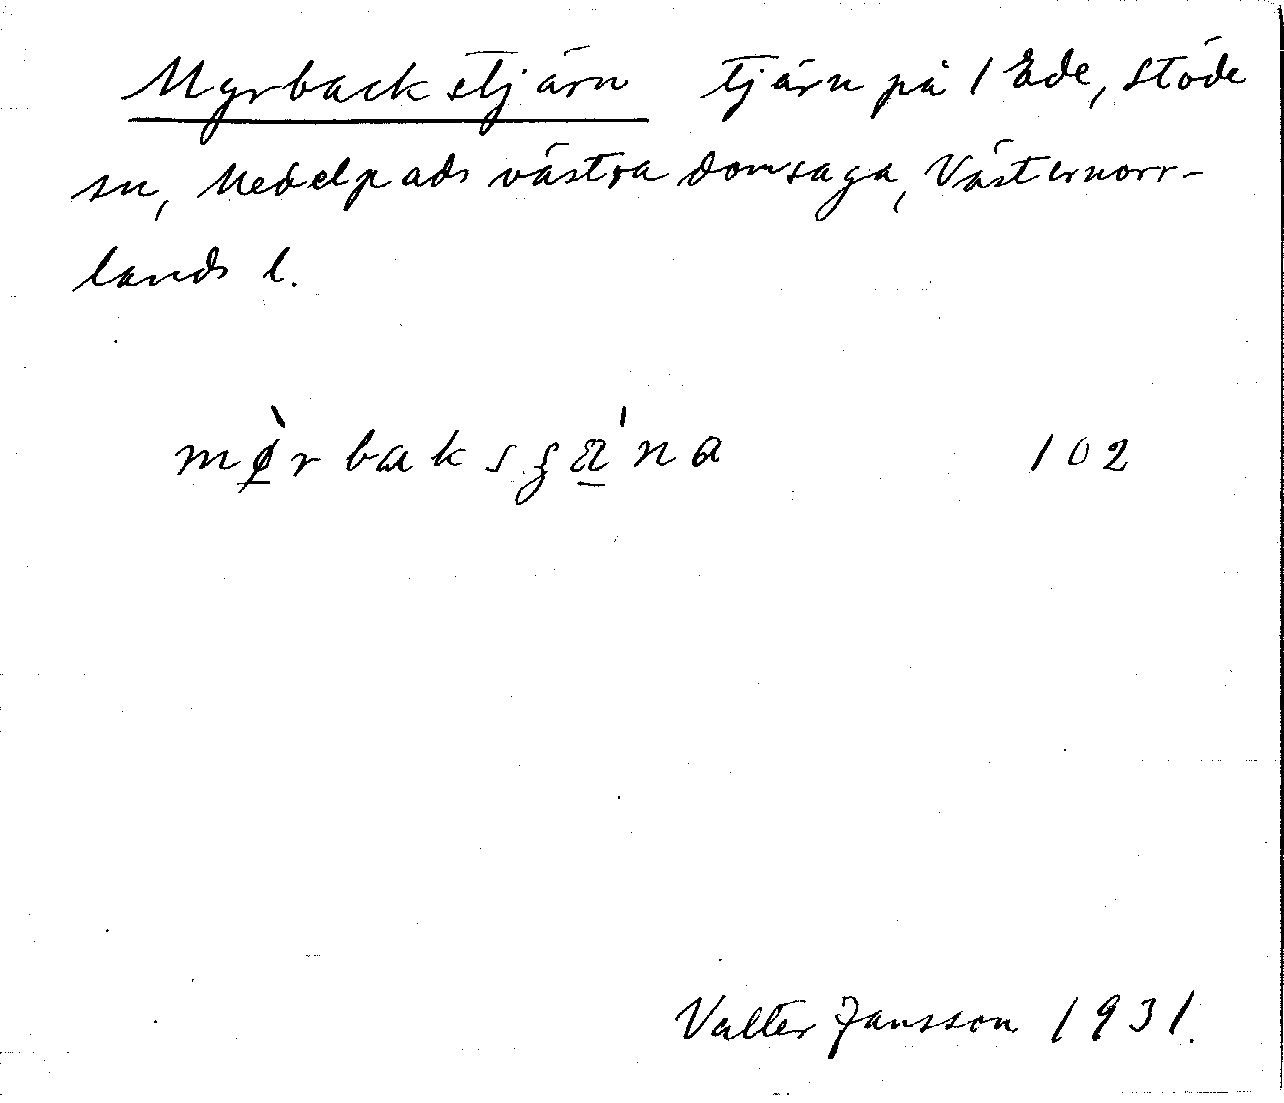 Myrbackstjärn tjärn på 1 Ede, Stöde
sn, Medelpads västra domsaga, Västernorr-
lands l.
mø̠̀rbaksʒä̠́na 102
Valter Jansson 1931.